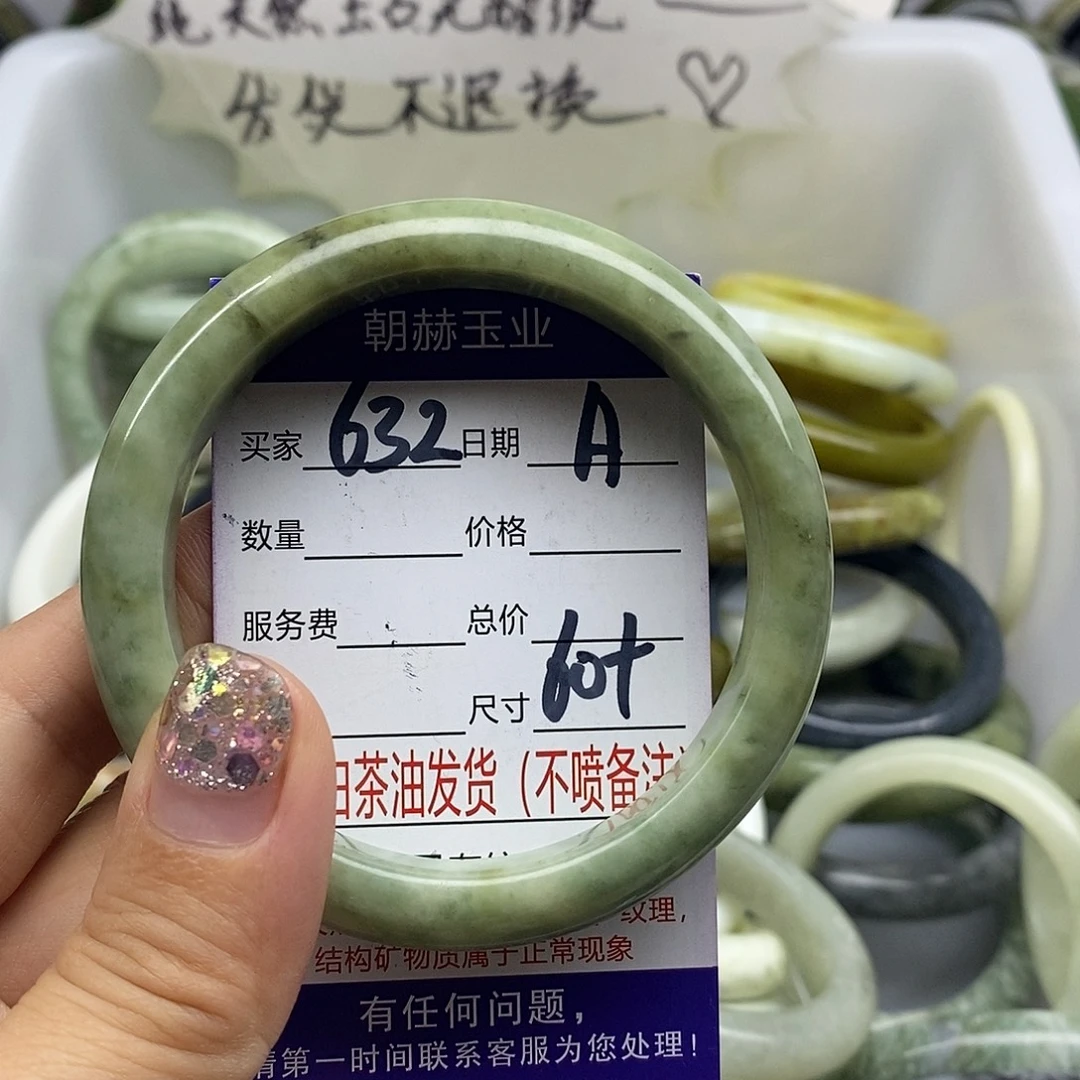 纯天然玉石无酸洗
售后不退换 ♡
朝赫玉业
买家 632 日期 A
数量 价格
服务费 总价
尺寸 60+
白茶油发货（不喷备注）
纹理，
结构矿物质属于正常现象
有任何问题，
请第一时间联系客服为您处理！